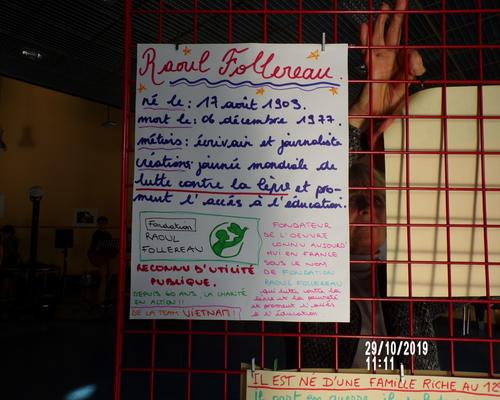 Raoul Follereau.
né le : 17 août 1903.
mort le : 06 décembre 1977.
métiers : écrivain et journaliste
créations : journée mondiale de
lutte contre la lèpre et pro-
ment l'accès à l'éducation.
Fondation
RAOUL
FOLLEREAU
RECONNU D'UTILITÉ
PUBLIQUE.
DEPUIS 60 ANS, LA CHARITÉ
EN ACTION !!
DE LA TEAM VIETNAM !!
FONDATEUR
DE L'OEUVRE
CONNU AUJOURD'
HUI EN FRANCE
SOUS LE NOM
DE FONDATION
RAOUL FOLLEREAU
qui lutte contre la
lèpre et la pauvreté
et proment l'accès
à l'éducation
29/10/2019
11:11
IL EST NÉ D'UNE FAMILLE RICHE AU